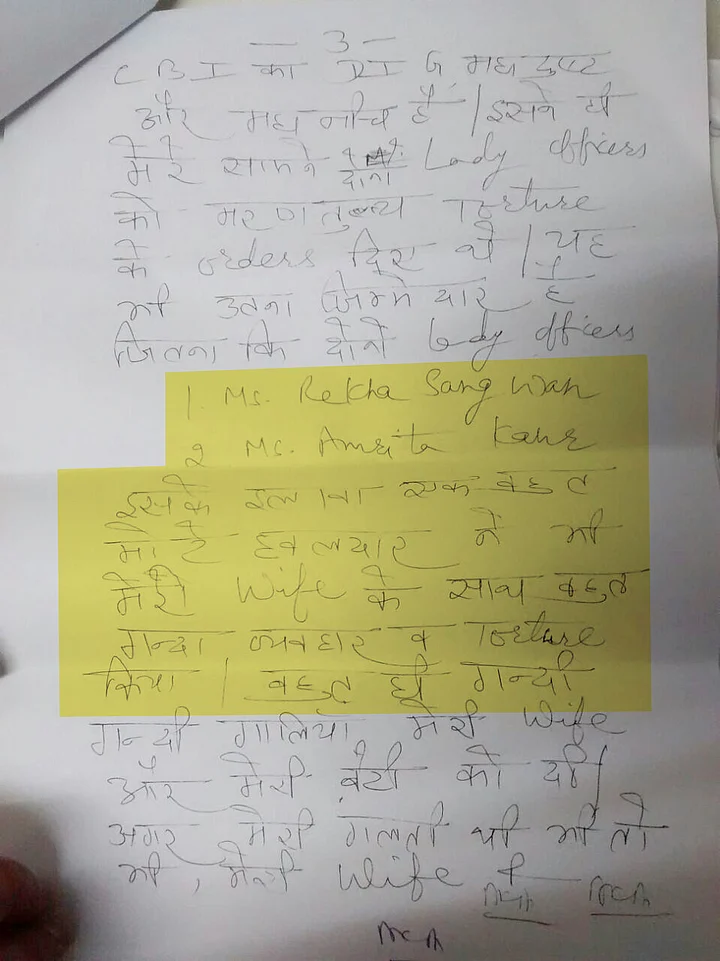 — 3 —
CBI का DIG महा दुष्ट
और महा नीच है | इसने ही
मेरे सामने दोनो Lady officers
को मरण तुल्य Torture
के orders दिए थे | यह
भी उतना जिम्मेदार है
जितना कि दोनो Lady officers
1. Ms. Rekha Sangwan
2 Ms. Amrita Kaur
इसके इलावा एक बहुत
मोटे हवलदार ने भी
मेरी Wife के साथ बहुत
गन्दा व्यवहार व Torture
किया | बहुत ही गन्दी
गन्दी गालियाँ मेरी Wife
और मेरी बेटी को दी |
अगर मेरी गलती थी भी तो
भी, मेरी Wife